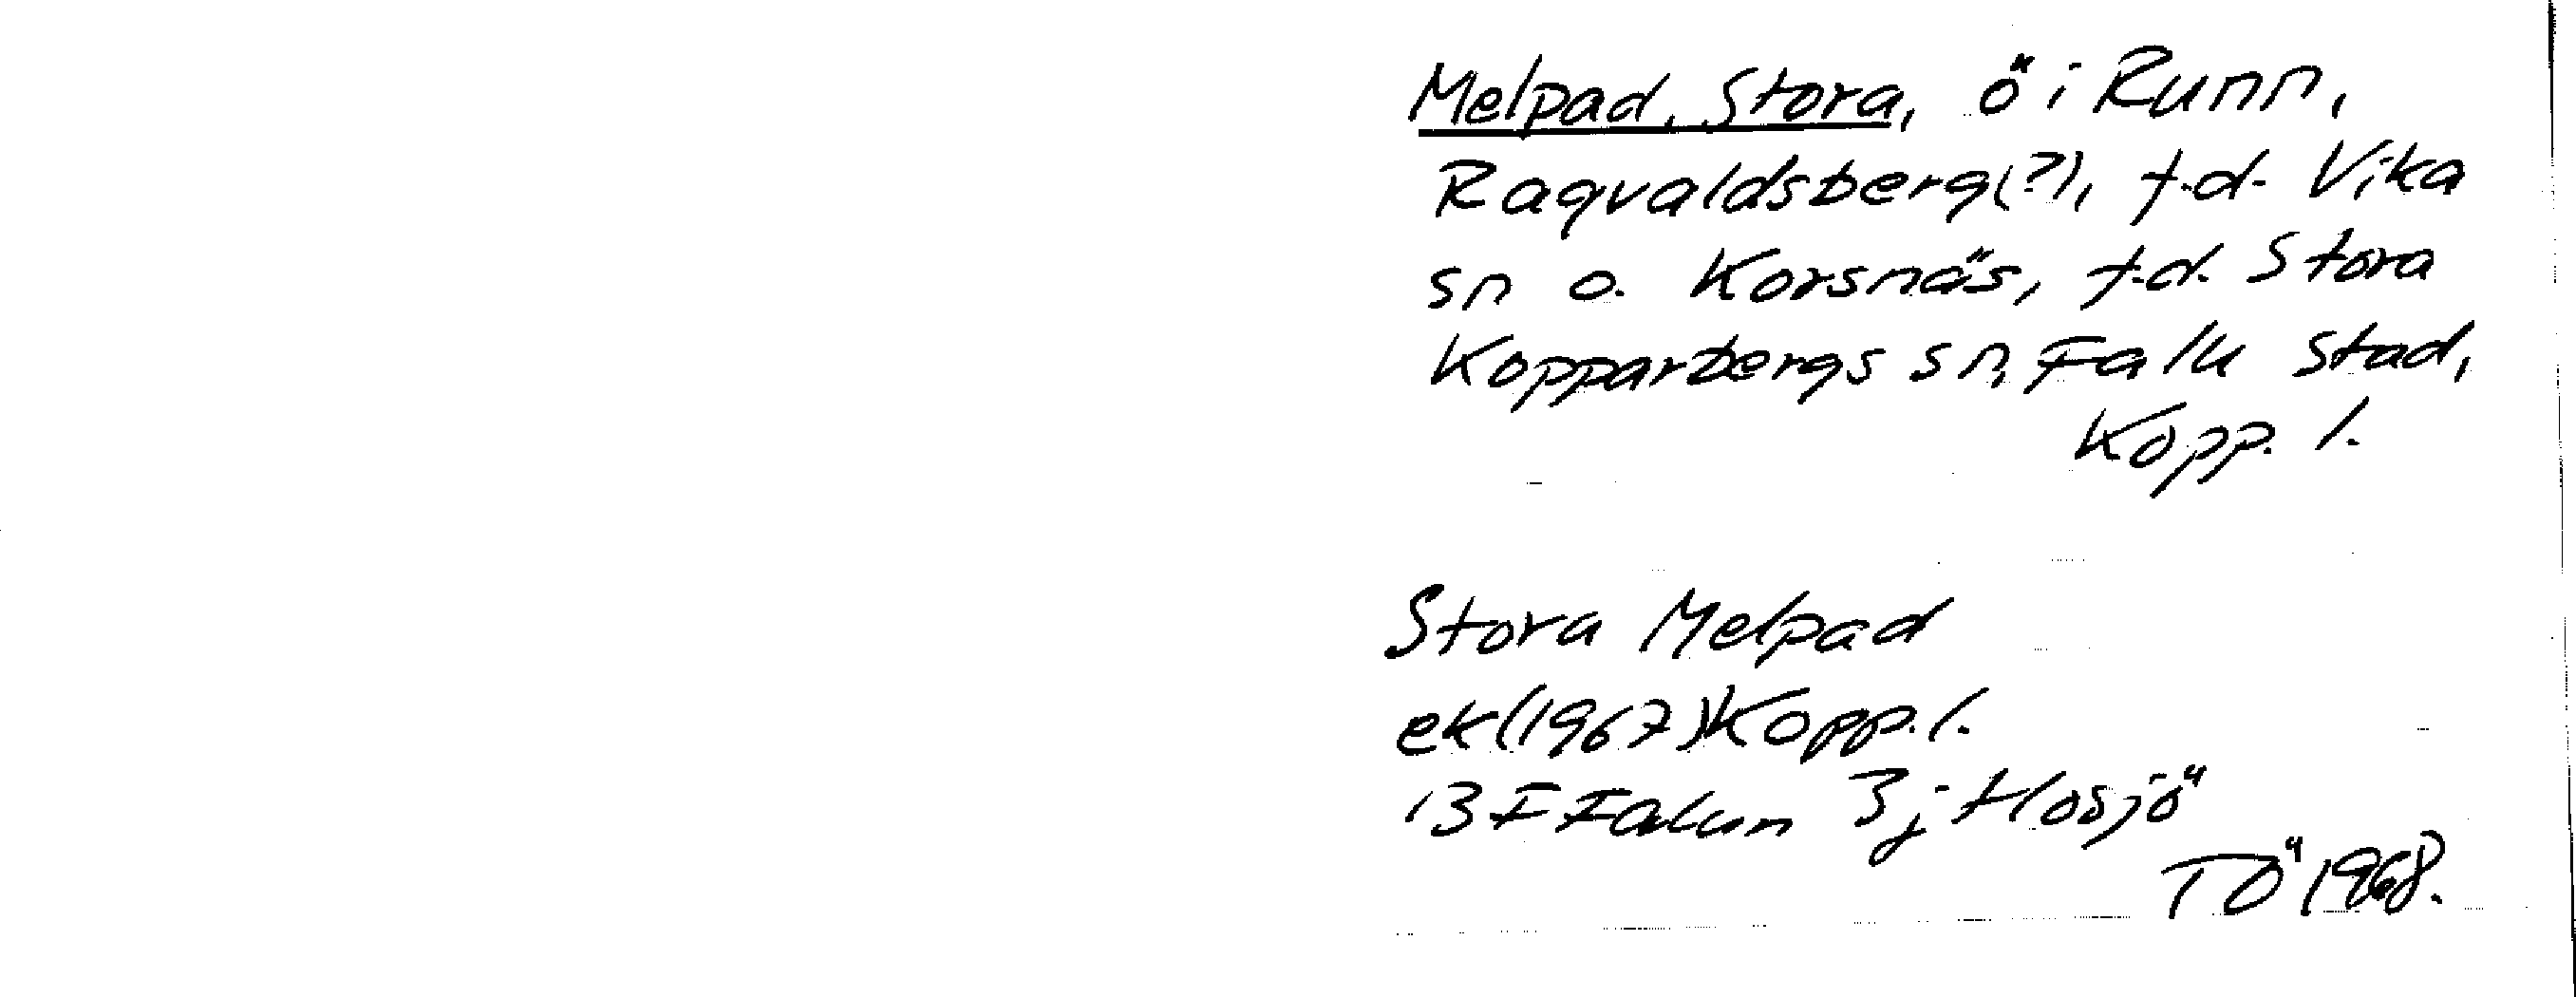 Melpad, Stora, ö i Runn,
Ragvaldsberg(?), f.d. Vika
sn o. Korsnäs, f.d. Stora
Kopparbergs sn, Falu stad,
Kopp. l.
Stora Melpad
ek(1967)Kopp. l.
13 F Falun 3j Hosjö
TÖ 1968.